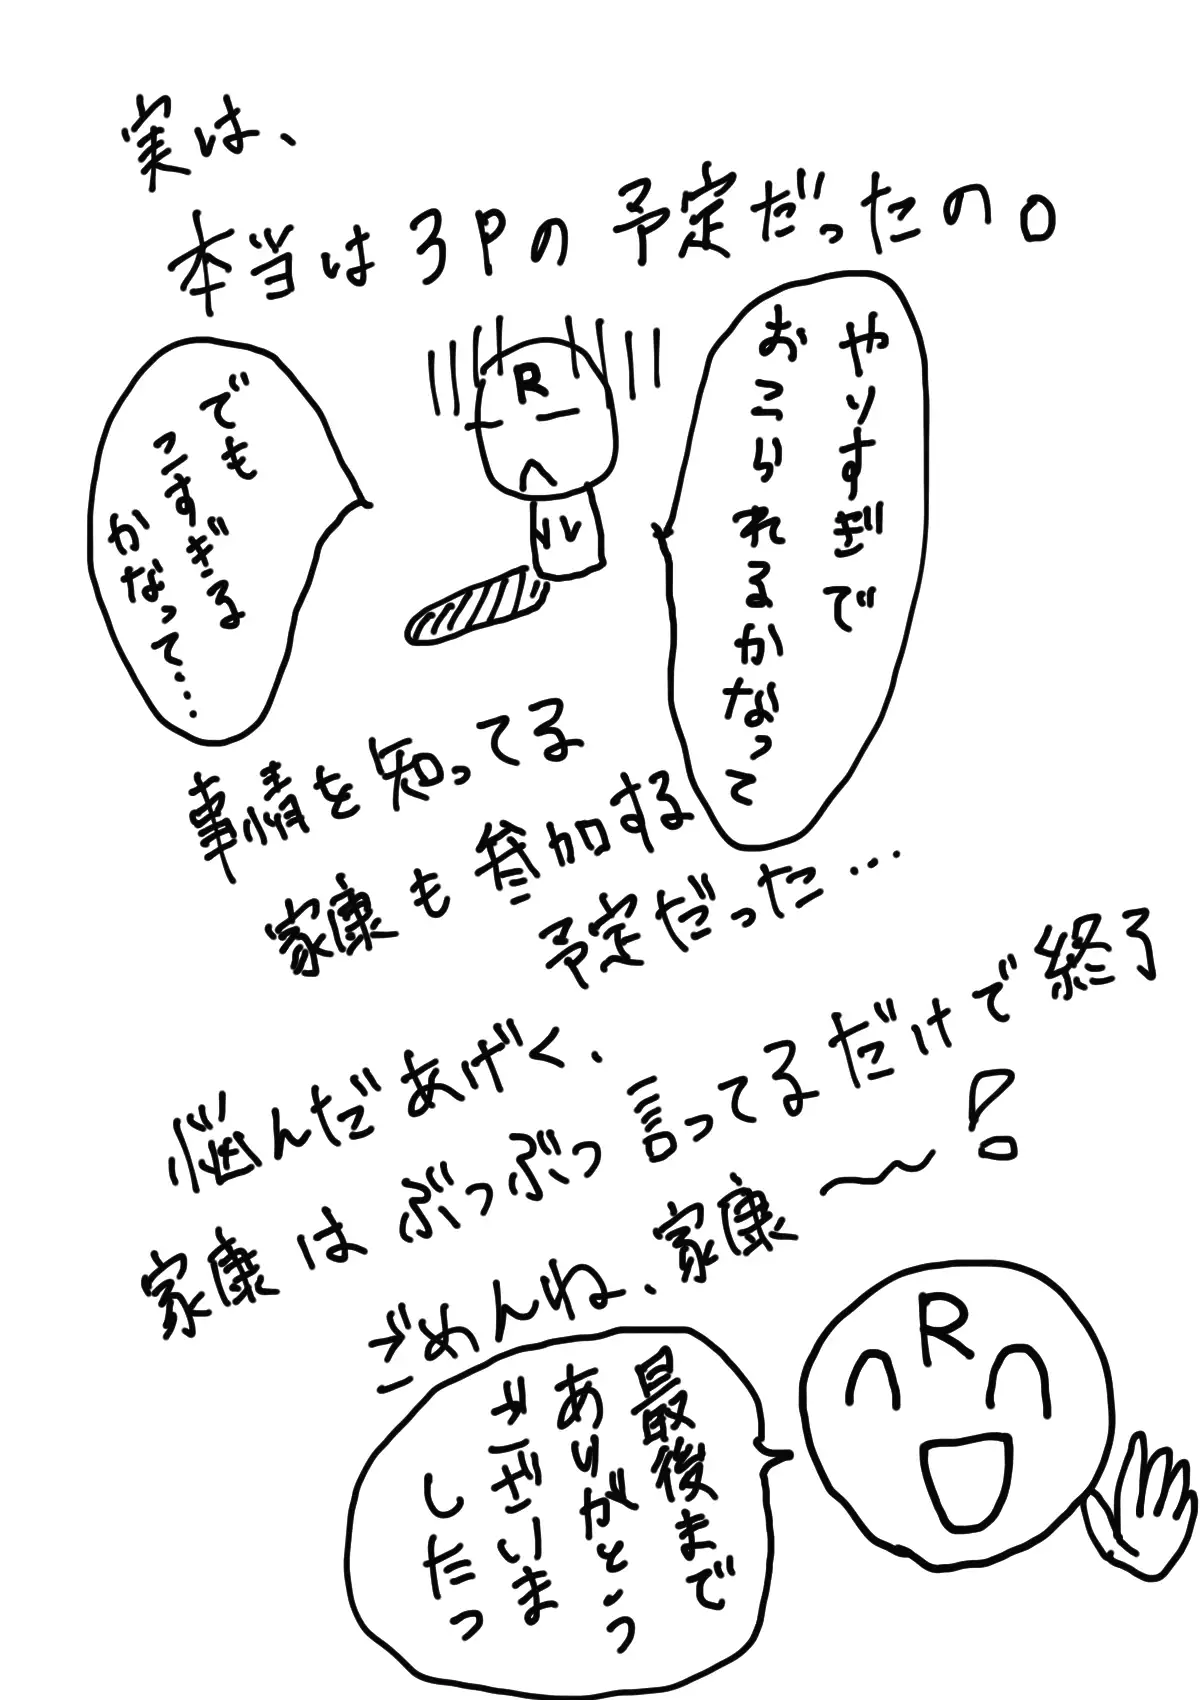 実は、
本当は3Pの予定だったの。
R
やりすぎで
おこられるかなって
でも
こすぎる
かなって…
事情を知ってる
家康も参加する
予定だった…
悩んだあげく、
家康はぶつぶつ言ってるだけで終了
ごめんね、家康〜!
R
最後まで
ありがとう
ございま
したっ